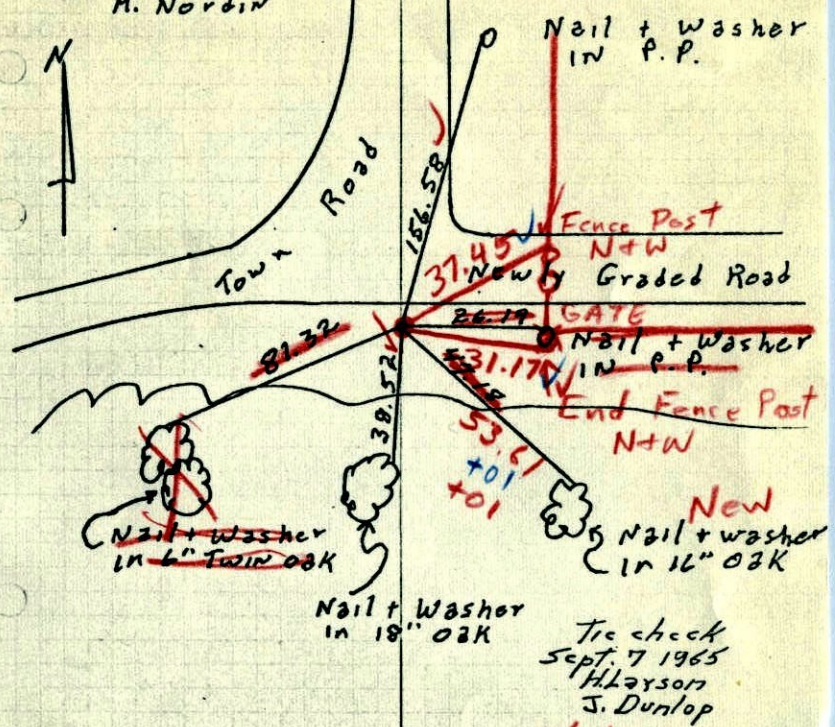 H. Nordin
N
Nail + Washer
IN P.P.
Town Road
156.58
Fence Post
N+W
37.45
Newly Graded Road
GATE
26.19
Nail + Washer
IN P.P.
81.32
31.17
38.52
End Fence Post
N+W
53.61
+01
+01
New
Nail + Washer
in 6" Twin Oak
Nail + washer
in 16" Oak
Nail + Washer
in 18" Oak
Tie check
Sept. 7 1965
H.Larson
J. Dunlop